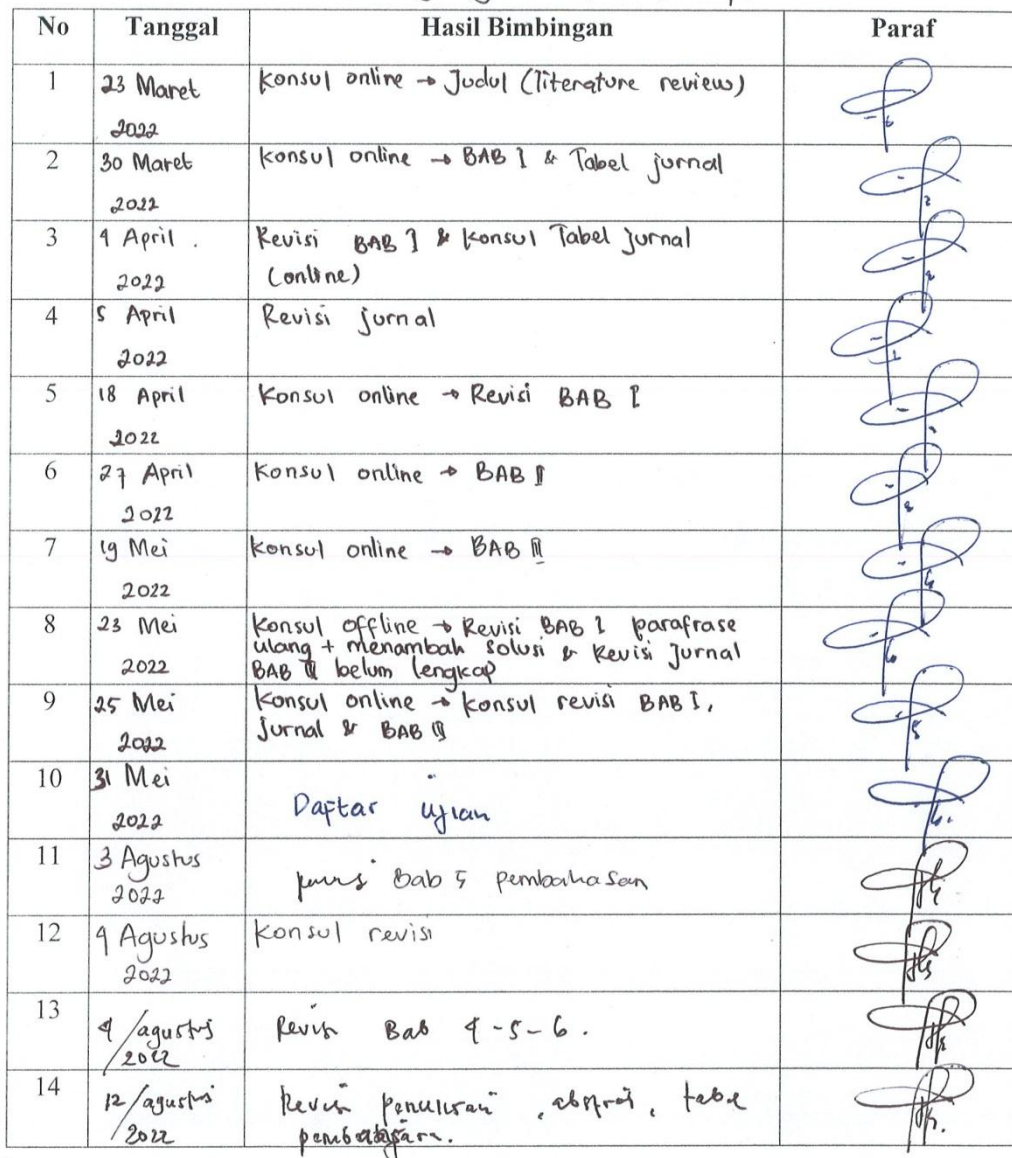 No Tanggal Hasil Bimbingan Paraf
1 23 Maret 2022 Konsul online → Judul (literature review)
2 30 Maret 2022 Konsul online → BAB I & Tabel jurnal
3 4 April. 2022 Revisi BAB I & Konsul Tabel jurnal
(online)
4 5 April 2022 Revisi jurnal
5 18 April 2022 Konsul online → Revisi BAB I
6 27 April 2022 Konsul online → BAB II
7 19 Mei 2022 Konsul online → BAB III
8 23 Mei 2022 Konsul offline → Revisi BAB I parafrase
ulang + menambah solusi & Revisi Jurnal
BAB belum lengkap
9 25 Mei 2022 Konsul online → konsul revisi BAB I,
Jurnal & BAB
10 31 Mei 2022 Daftar ujian
11 3 Agustus 2022 Bab 5 pembahasan
12 4 Agustus 2022 Konsul revisi
13 9/agustus/2022 Revisi Bab 4-5-6.
14 12/agustus/2022 Revisi penulisan, abstrak, tabel